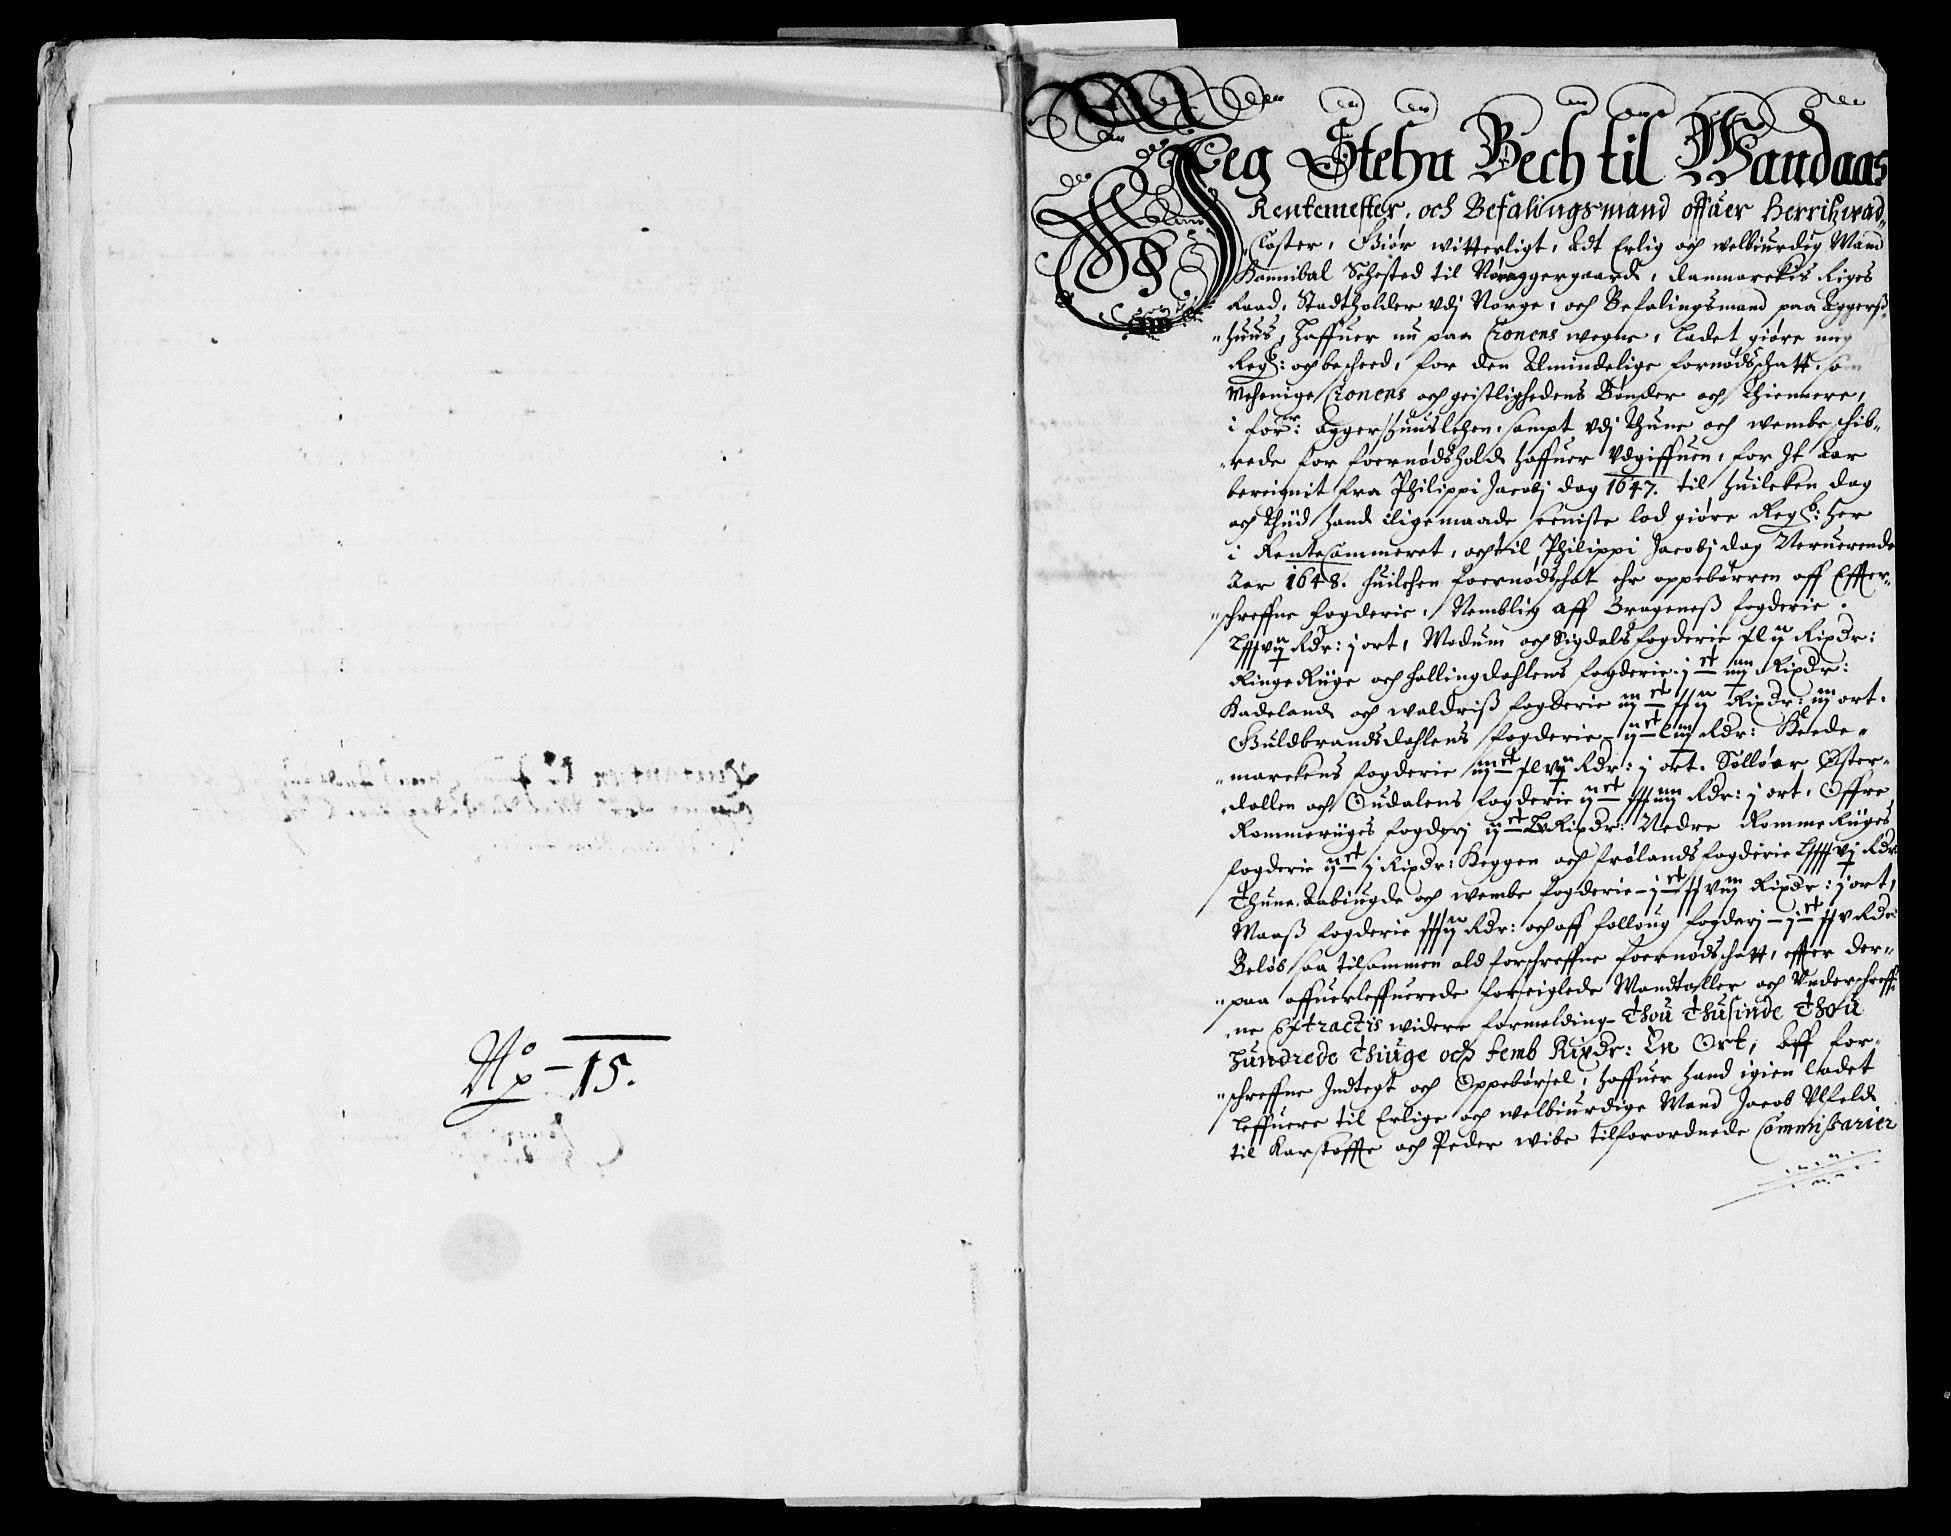 No 15.
Jeg Stehn Bech til Wandaas
Rentemester, och Befalingsmand offuer Herritzwad
Closter, Giør witterligt, Adt Erlig och welbiurdig Mand
Hannibal Sehested til Nøraggergaard, Danmarckis Riges
Raad, Stadtholder vdj Norge, och Befalingsmand paa Aggerß
huus, haffuer nu paa Cronens wegne, ladet giøre mig
Regß: och bescheed, for den Almindelige fornødschatt, som
Menige Cronens och geistlighedens Bønder och Thiennere,
i forne: Aggershuuslehen, sampt vdj Thune och wembe schib-
rede for foernødshold haffuer vdgiffuen, for It Aar
bereignit fra Philippi Jacobi dag 1647. til huilcken dag
och Thiid hand iligemaade seeniste lod giøre Regß: her
i RenteCammeret, och til Philippi Jacobj dag Neruerende
Aar 1648. huilchen foernødschat ehr oppebørren aff Effter-
schreffne fogderie, Nemblig aff Brageneß fogderie
Rdr: j ort, Modum och Sigdals fogderie Rixdr:
RingeRiige och Hallingdahlens fogderie Rixdr:
Hadeland och waldriß fogderie Rixdr: iij ort.
Guldbrandsdahlens fogderie Rdr: Heede-
marckens fogderie Rdr: j ort. Solløer Øster-
dallen och Oudalens fogderie Rdr: j ort, Offre
Rommeriiges fogderj Rixdr: Nedre RommeRiiges
fogderie Rixdr: Heggen och frølands fogderie Rdr:
Thune, Aabiugde och wembe fogderie Rixdr: j ort,
Moss fogderie Rdr: och aff follong fogderj Rdr:
Beløb saa tilsammen ald forschreffne foernødschatt, effter der-
paa offuerleffuerede forseiglede Mandtaller och Underschreff-
ne Extractis widere formelding Thou Thusinde Thou
hundrede Thiuge och femb Rixdr: En Ort, Aff for-
schreffne Indtegt och Oppebørsel, haffuer hand igien ladet
leffuere til Erlige och welbiurdige Mand Jacob Ulfeld
til Karstofte och Peder wibe tilforordnede Commissarier